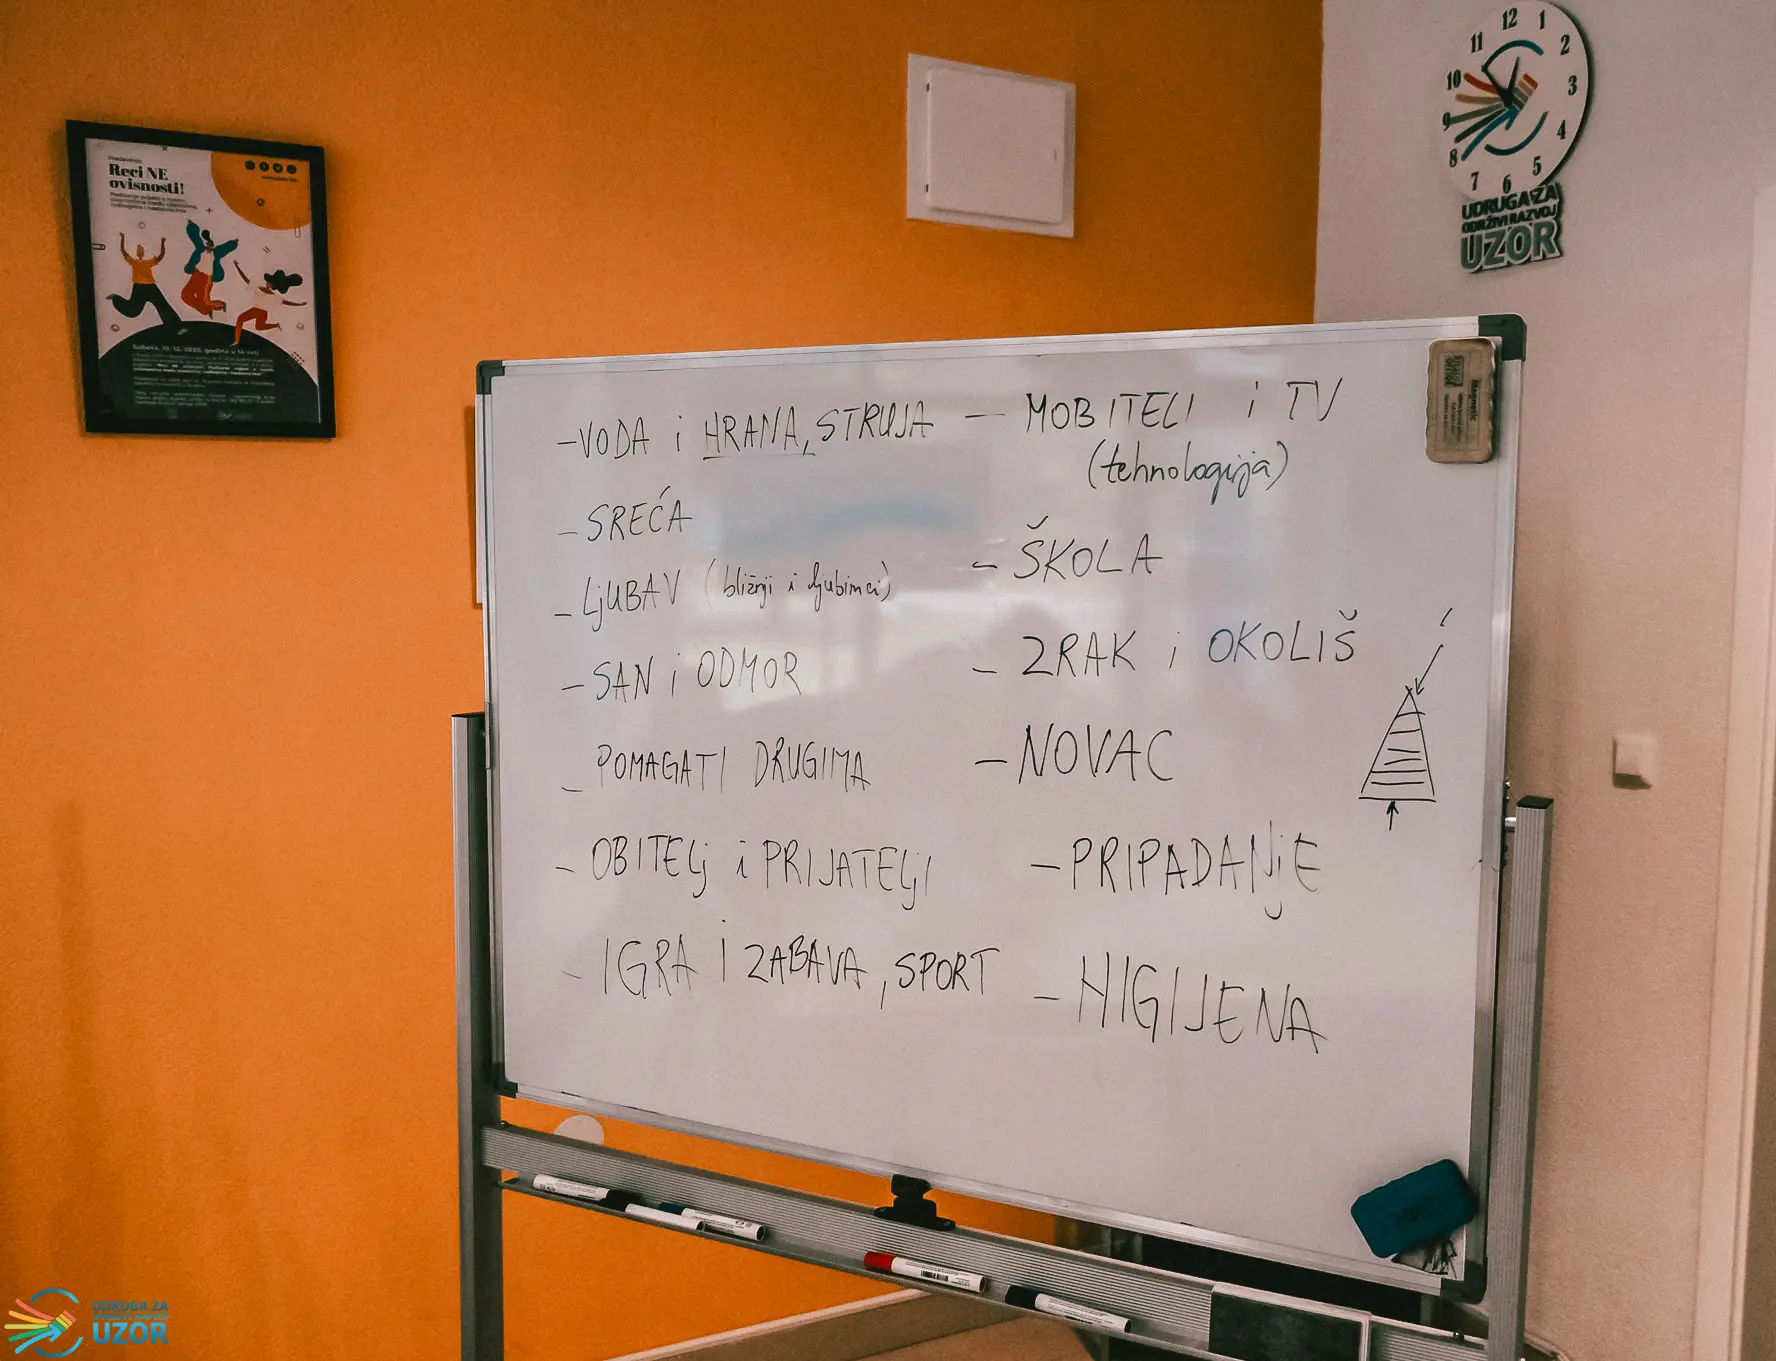 Reci NE
ovisnosti!
12
1
2
3
4
5
6
7
8
9
10
11
UDRUGA ZA
ODRŽIVI RAZVOJ
UZOR
Magnetic
-VODA i HRANA, STRUJA
- SREĆA
- LjUBAV (bližnji i ljubimci)
- SAN i ODMOR
- POMAGATI DRUGIMA
- OBITELj i PRIJATELjI
- IGRA I ZABAVA, SPORT
- MOBITELI i TV
(tehnologija)
- ŠKOLA
- ZRAK i OKOLIŠ
- NOVAC
- PRIPADANjE
- HIGIJENA
UDRUGA ZA
ODRŽIVI RAZVOJ
UZOR